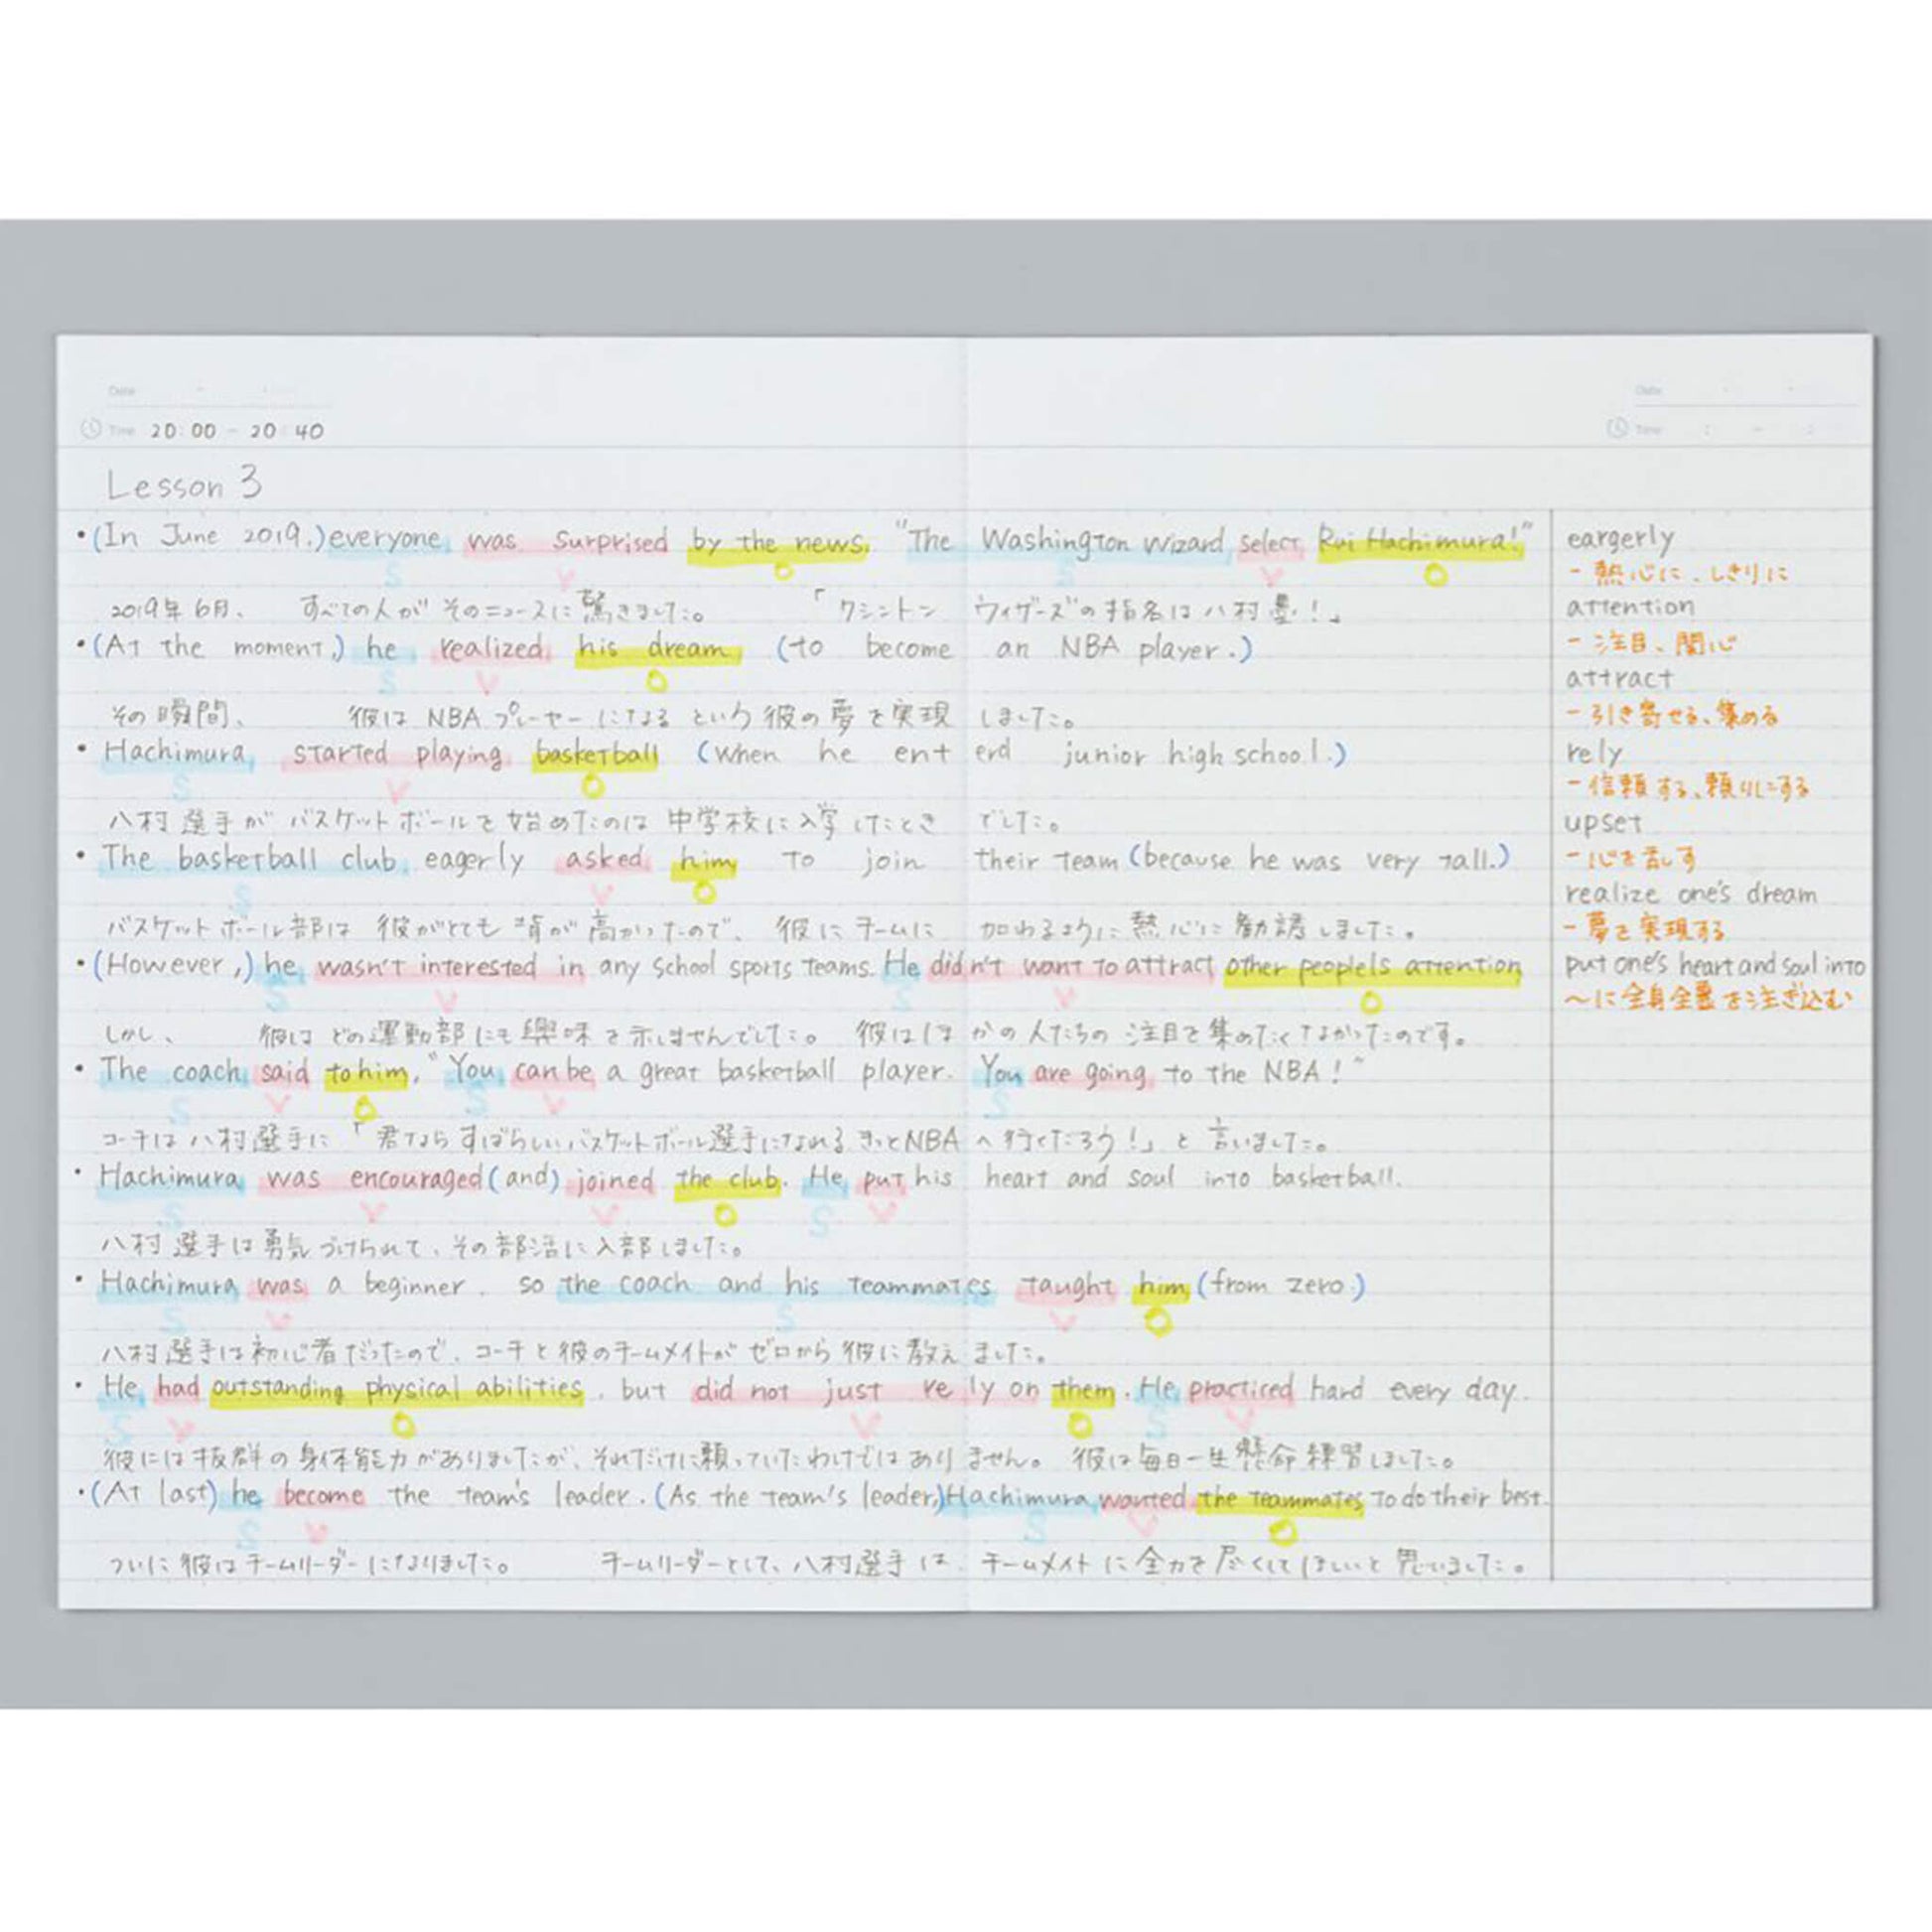 Date
Time 20:00 - 20:40
Date
Time
Lesson 3
・(In June 2019,) everyone was surprised by the news. "The Washington Wizard select Rui Hachimura!"
S V O S V O
2019年6月、 すべての人が そのニュースに驚きました。 「ワシントン ウィザーズの指名は八村塁!」
・(At the moment,) he realized his dream (to become an NBA player.)
S V O
その瞬間、 彼は NBAプレーヤーになる という彼の夢を実現 しました。
・Hachimura started playing basketball (when he enterd junior high school.)
S V O
八村選手が バスケットボールを始めたのは 中学校に入学したとき でした。
・The basketball club eagerly asked him to join their team (because he was very tall.)
S V O
バスケットボール部は 彼がとても背が高かったので、 彼にチームに 加わるように熱心に勧誘しました。
・(However,) he wasn't interested in any school sports teams. He didn't want to attract other people's attention
S V S V O
しかし、 彼は どの運動部にも興味を示しませんでした。 彼はほかの人たちの 注目を集めたくなかったのです。
・The coach said to him, "You can be a great basketball player. You are going to the NBA!"
S V O S V S
コーチは八村選手に「君ならすばらしいバスケットボール選手になれる きっとNBAへ行くだろう!」と言いました。
・Hachimura was encouraged (and) joined the club. He put his heart and soul into basketball.
S V V O S V
八村選手は勇気づけられて、その部活に入部しました。
・Hachimura was a beginner, so the coach and his teammates taught him (from zero.)
S V S V O
八村選手は初心者だったので、コーチと彼のチームメイトが ゼロから彼に教えました。
・He had outstanding physical abilities, but did not just rely on them. He practiced hard every day.
S V O V O S V
彼には抜群の身体能力がありましたが、それだけに頼っていたわけではありません。 彼は毎日一生懸命練習しました。
・(At last) he become the team's leader. (As the team's leader,) Hachimura wanted the teammates to do their best.
S V S V O
ついに彼はチームリーダーになりました。 チームリーダーとして、八村選手は チームメイトに全力を尽くしてほしいと思いました。
eargerly
- 熱心に、しきりに
attention
- 注目、関心
attract
- 引き寄せる、集める
rely
- 信頼する、頼りにする
upset
- 心を乱す
realize one's dream
- 夢を実現する
put one's heart and soul into
〜に全身全霊を注ぎ込む